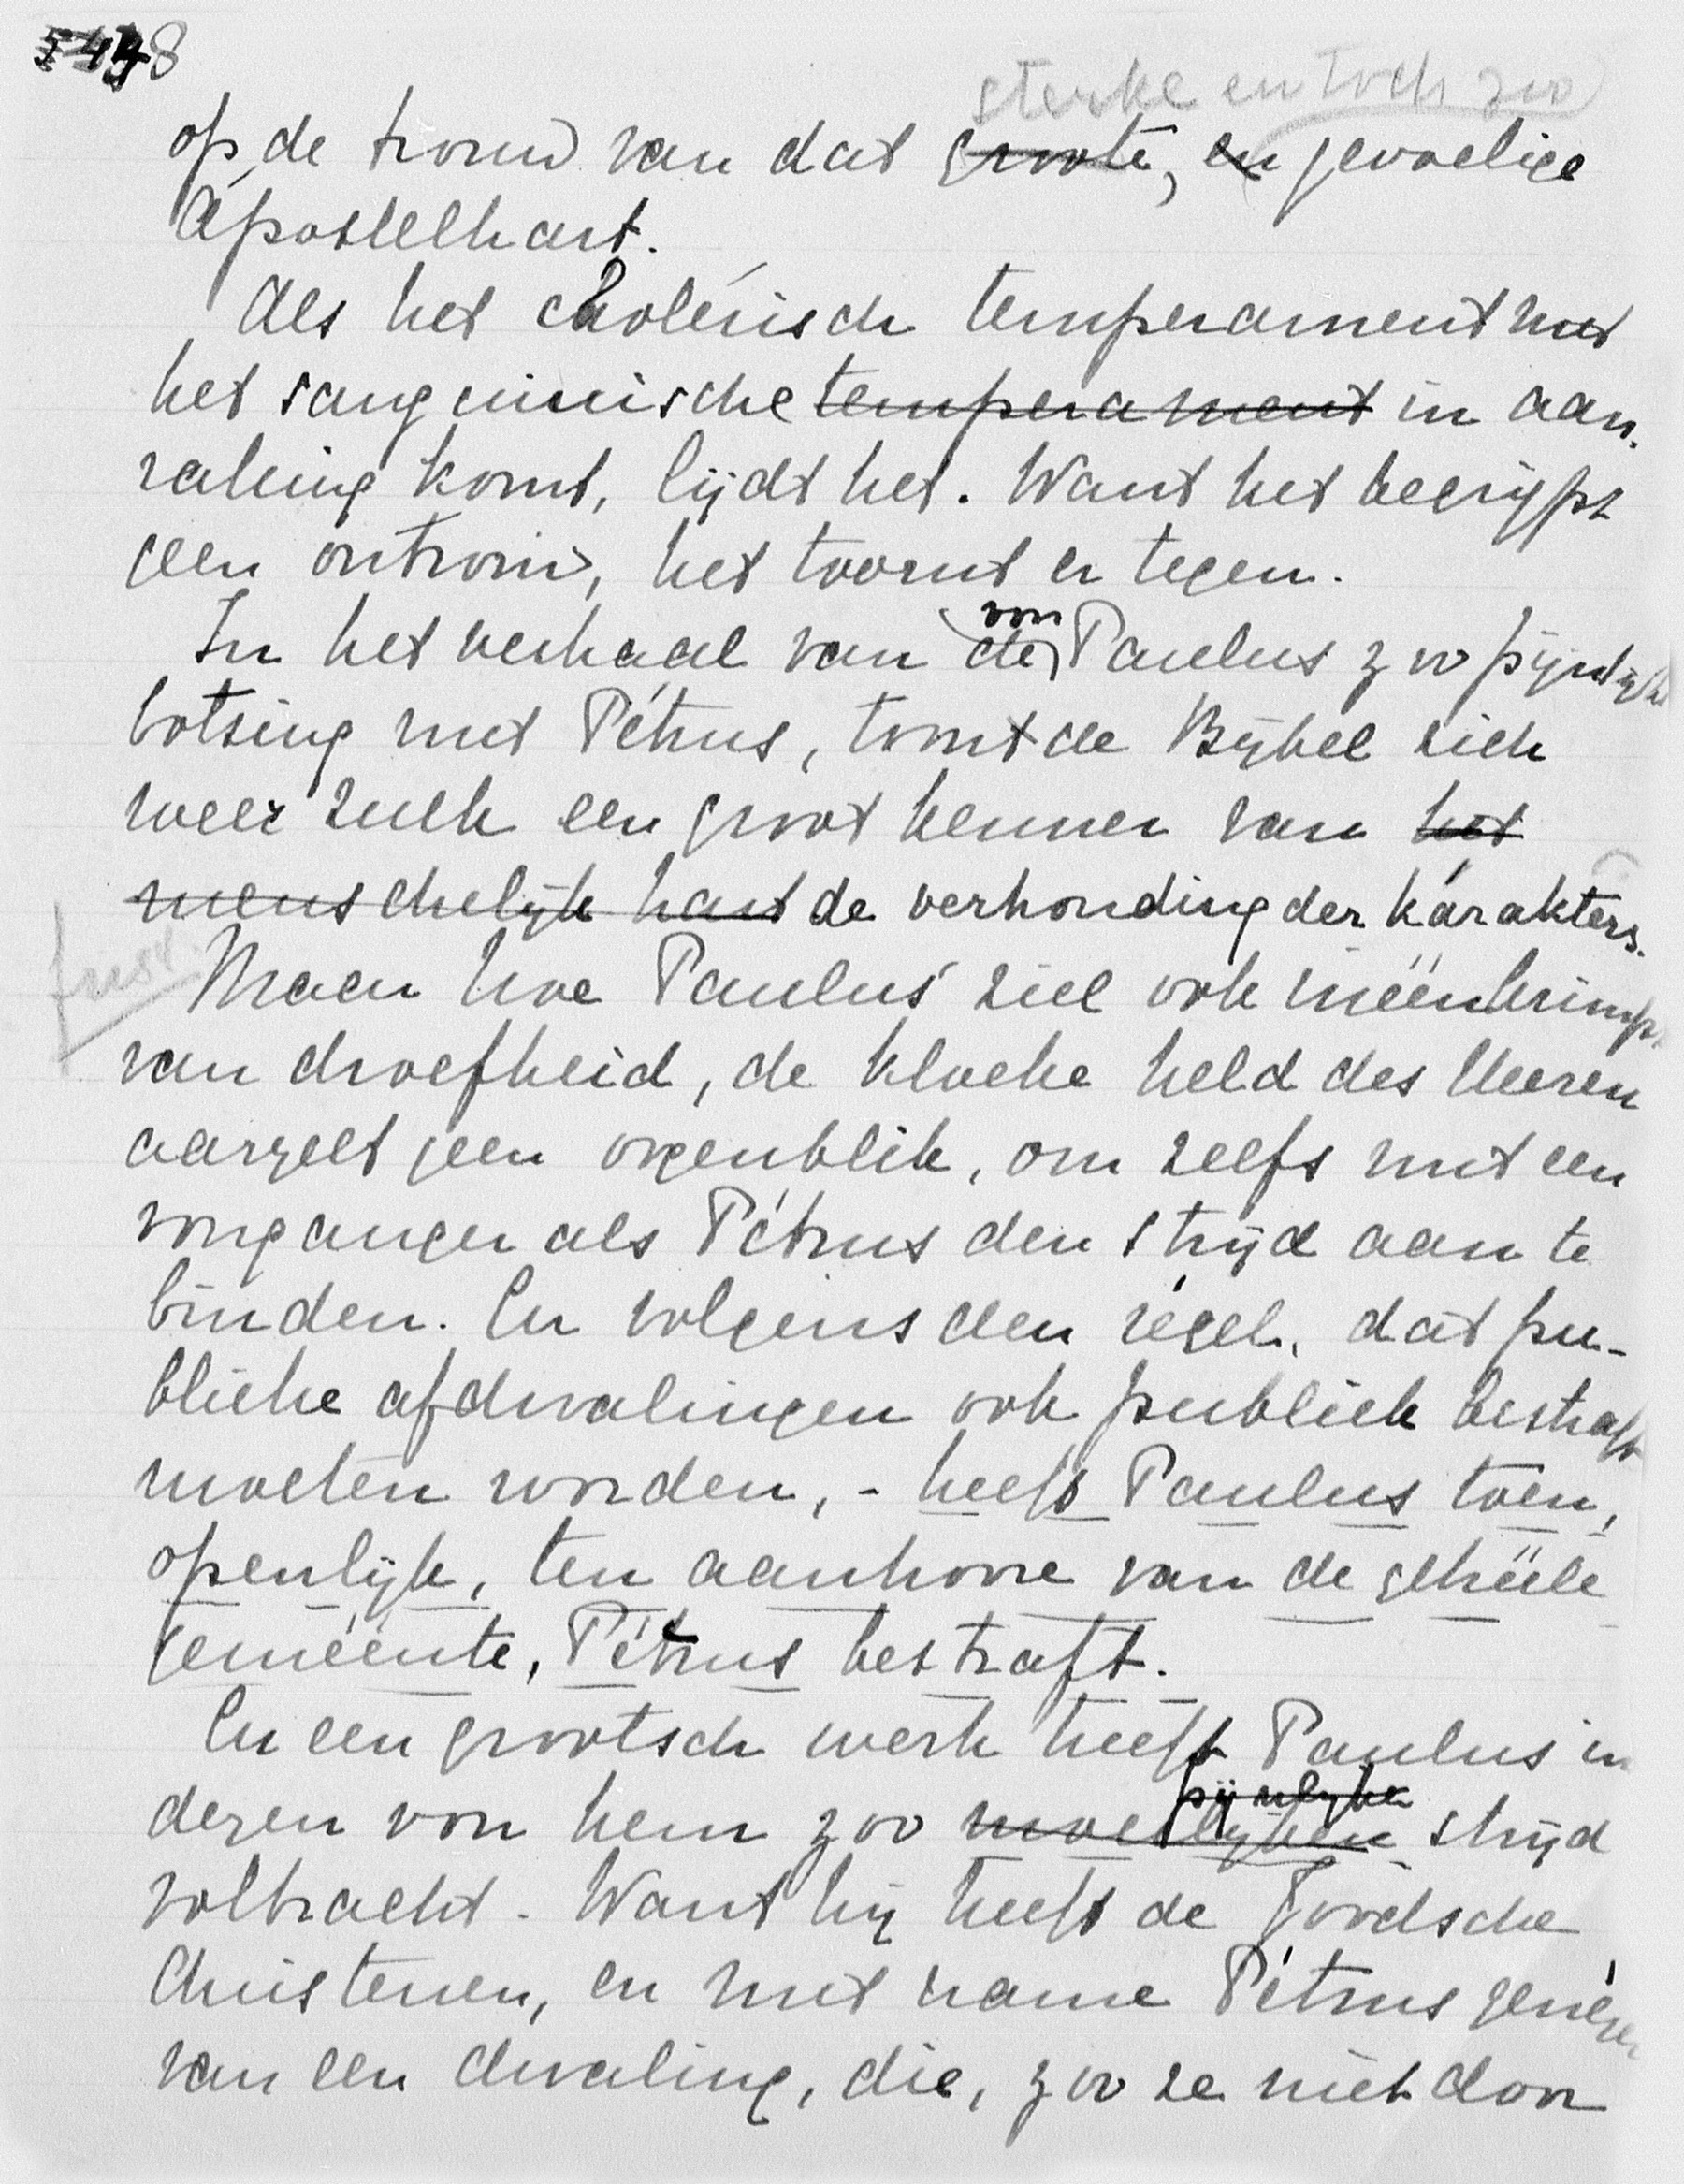 8
sterke en toch zoo
op de trouw van dat groote, en gevoelige
Apostelhart.
Als het cholerisch temperament met
het sanguinische temperament in aan-
raking komt, lijdt het. Want het begrijpt
geen ontrouw, het toornt er tegen.
voor
In het verhaal van de Paulus zoo pijnlijke
botsing met Petrus, toont de Bijbel zich
weer zulk een groot kenner van het
menschelijk hart de verhouding der karakters.
Maar hoe Paulus' ziel ook inéénkrimpt
van droefheid, de kloeke held des Heeren
aarzelt geen oogenblik, om zelfs met een
voorganger als Petrus den strijd aan te
binden. En volgens den regel, dat pu-
blieke afdwalingen ook publiek bestraft
moeten worden, - heeft Paulus toen,
openlijk, ten aanhoore van de geheele
gemeente, Petrus bestraft.
En een grootsch werk heeft Paulus in
pijnlijken
dezen voor hem zoo moeilijken strijd
volbracht. Want hij heeft de Joodsche
Christenen, en met name Petrus genezen
van een dwaling, die, zoo ze niet door